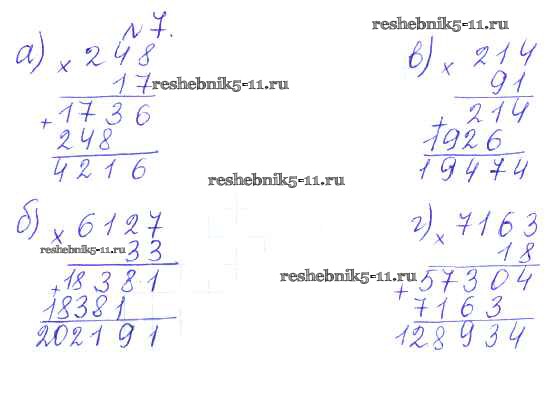 № 7.
reshebnik5-11.ru
а) × 248
17
reshebnik5-11.ru
+ 1736
248
4216
в) × 214
91
+ 214
1926
19474
reshebnik5-11.ru
б) × 6127
reshebnik5-11.ru
33
+ 18381
18381
202191
г) × 7163
18
reshebnik5-11.ru
+ 57304
7163
128934